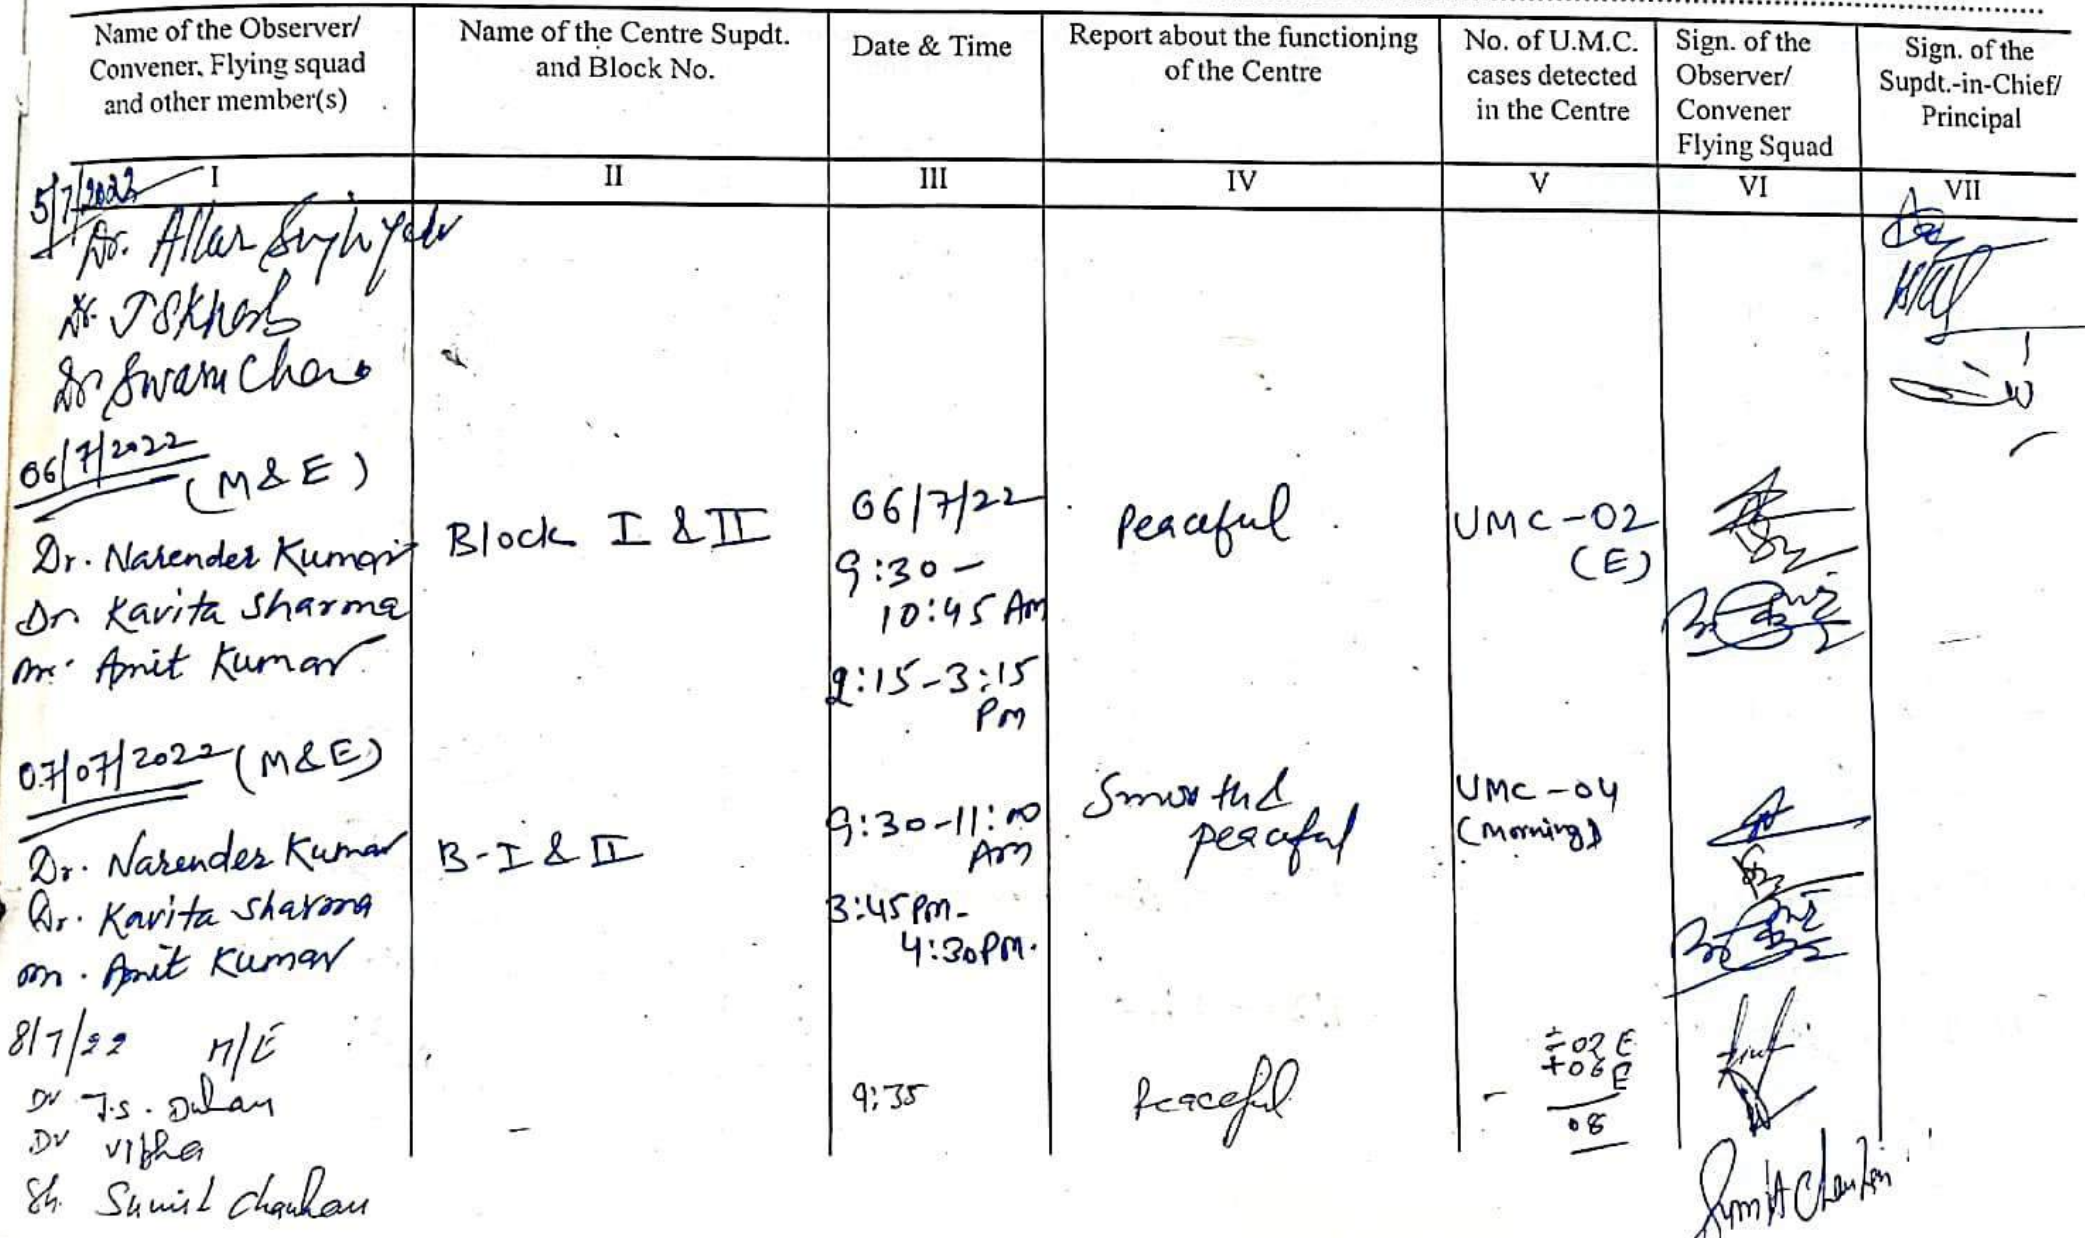 Name of the Observer/
Convener, Flying squad
and other member(s)
Name of the Centre Supdt.
and Block No.
Date & Time
Report about the functioning
of the Centre
No. of U.M.C.
cases detected
in the Centre
Sign. of the
Observer/
Convener
Flying Squad
Sign. of the
Supdt.-in-Chief/
Principal
I
II
III
IV
V
VI
VII
5/7/2022
Dr. Singh
Dr.
Dr Swarn
06/7/2022
(M & E)
Dr. Narender Kumar
Dr. Kavita Sharma
Mr. Amit Kumar
Block I & II
06/7/22
9:30 -
10:45 AM
2:15-3:15
PM
Peaceful
UMC-02
(E)
07/07/2022 (M&E)
Dr. Narender Kumar
Dr. Kavita Sharma
Amit Kumar
B-I & II
9:30-11:00
AM
3:45 PM-
4:30PM.
Smooth &
peaceful
UMC-04
(Morning)
8/7/22 M/E
Dr J.S. Duhan
Dr Vibha
Sh. Sumit Chauhan
-
9:35
Peaceful
-
02 E
+06 E
08
Sumit Chauhan